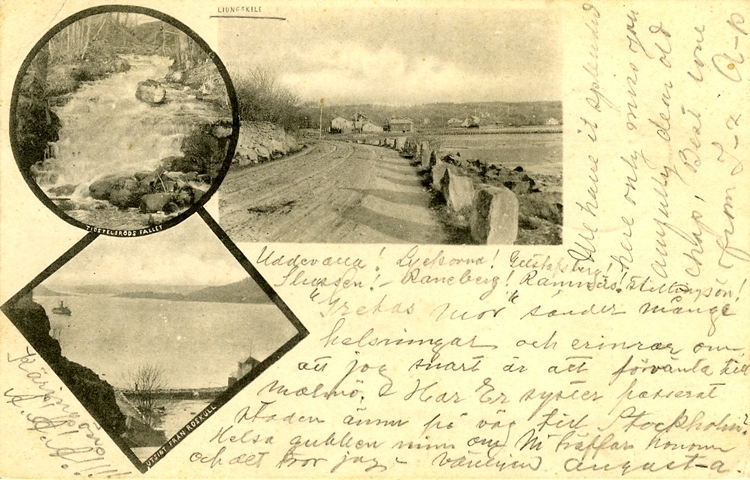 LJUNGSKILE
TISTELSRÖDS FALLET
UTSIGT FRÅN ROSKULL
Uddevalla! Lyckorna! Gustafsberg!
Slussen! - Raneberg! Ramnäs!
"Gretas mor" sänder många
helsningar och erinrar om
att jag snart är att förvänta till
Malmö. Har Er syster passerat
staden ännu på väg till Stockholm?
Helsa gubben min om Ni träffar honom
och det tror jag - vänligen august-a.
We have it splendid
here only miss you
awfully dear old
chap! Best love
from J-z A-p
Käringön!
A.A.A.!!!